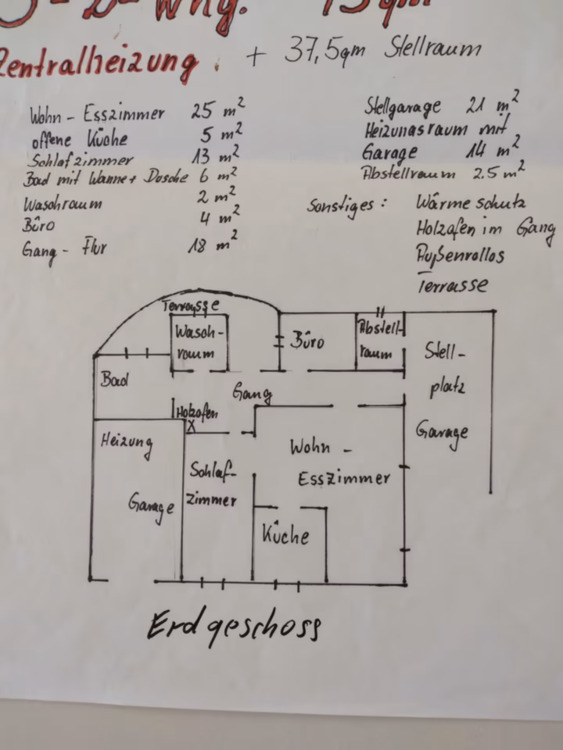 3-Z-Whg. 73qm
Zentralheizung. + 37,5qm Stellraum
Wohn - Esszimmer 25 m²
offene Küche 5 m²
Schlafzimmer 13 m²
Bad mit Wanne + Dusche 6 m²
Waschraum 2 m²
Büro 4 m²
Gang - Flur 18 m²
Stellgarage 21 m²
Heizungsraum mit
Garage 14 m²
Abstellraum 2.5 m²
Sonstiges: Wärmeschutz
Holzofen im Gang
Außenrollos
Terrasse
Terrasse
Wasch-
raum
Büro
Abstell-
raum
Stell-
platz
Garage
Bad
Gang
Holzofen
X
Heizung
Garage
Schlaf-
zimmer
Wohn -
Esszimmer
Küche
Erdgeschoss